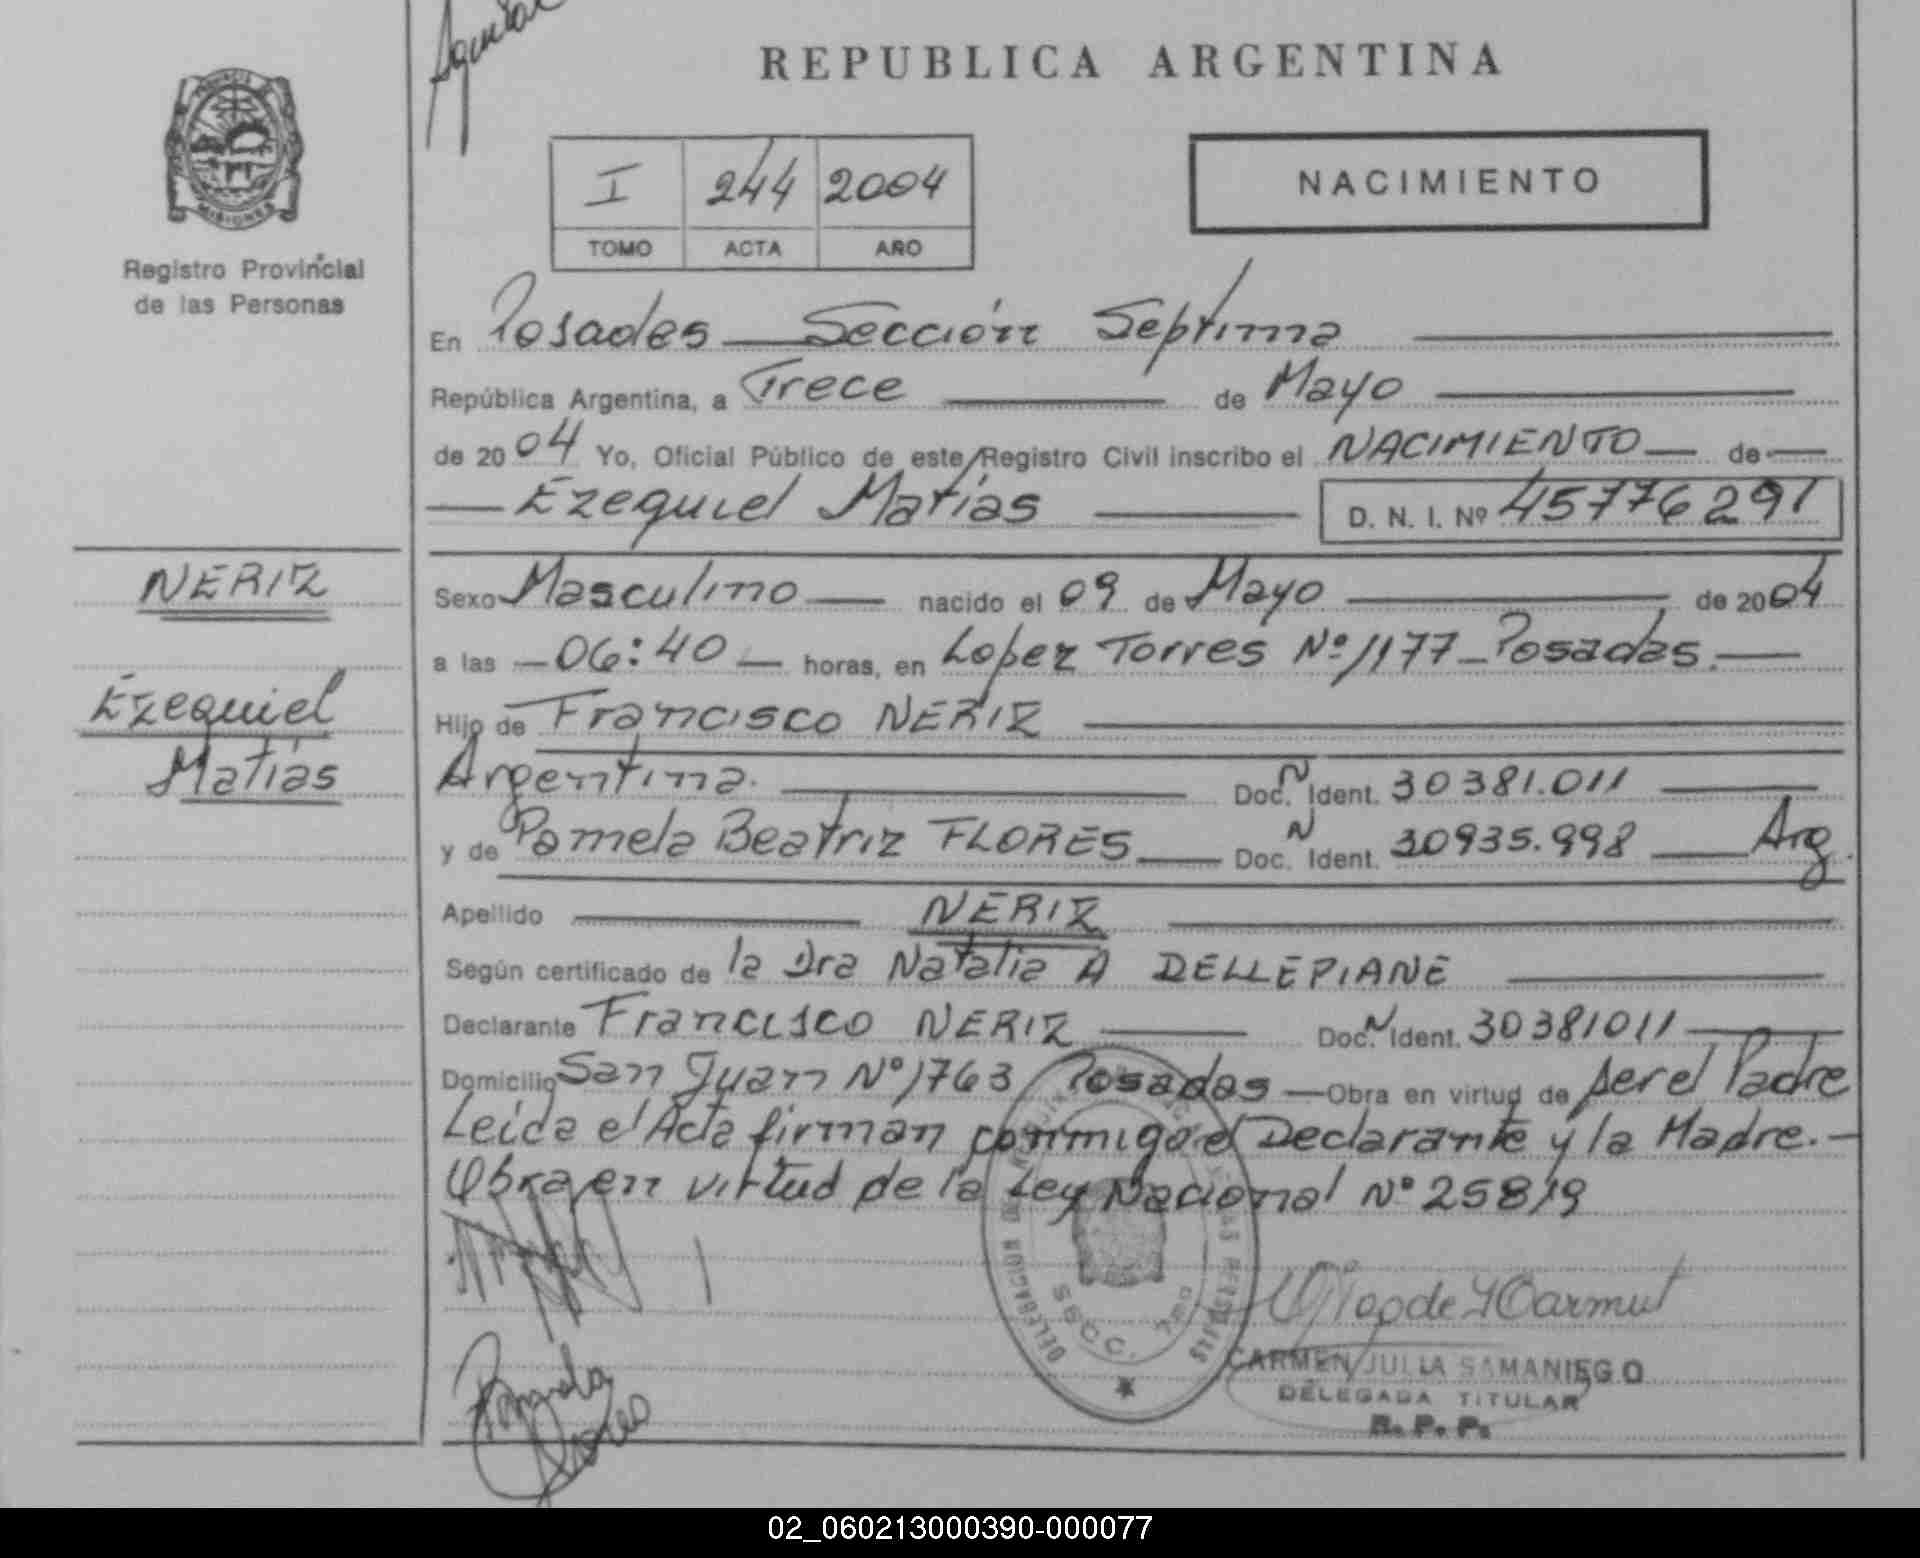 REPUBLICA ARGENTINA
PROVINCIA DE MISIONES
Registro Provincial
de las Personas
I 244 2004
TOMO ACTA AÑO
NACIMIENTO
En Posadas Sección Septima
República Argentina, a Trece de Mayo
de 2004 Yo, Oficial Público de este Registro Civil inscribo el NACIMIENTO de
Ezequiel Matías D. N. I. Nº 45776291
NERIZ
Ezequiel
Matías
Sexo Masculino nacido el 09 de Mayo de 2004
a las 06:40 horas, en Lopez Torres Nº 1177 Posadas.
Hijo de Francisco NERIZ
Argentina. Doc. N Ident. 30381.011
y de Pamela Beatriz FLORES Doc. N Ident. 30935.998 Arg.
Apellido NERIZ
Según certificado de la Dra Natalia A DELLEPIANE
Declarante Francisco NERIZ Doc. N Ident. 30381011
Domicilio San Juan Nº 1763 Posadas Obra en virtud de ser el Padre
Leida el Acta firman conmigo el Declarante y la Madre.
Obra en virtud de la Ley Nacional Nº 25819
Pamela
Flores
CARMEN JULIA SAMANIEGO
DELEGADA TITULAR
R. P. P.
02_060213000390-000077